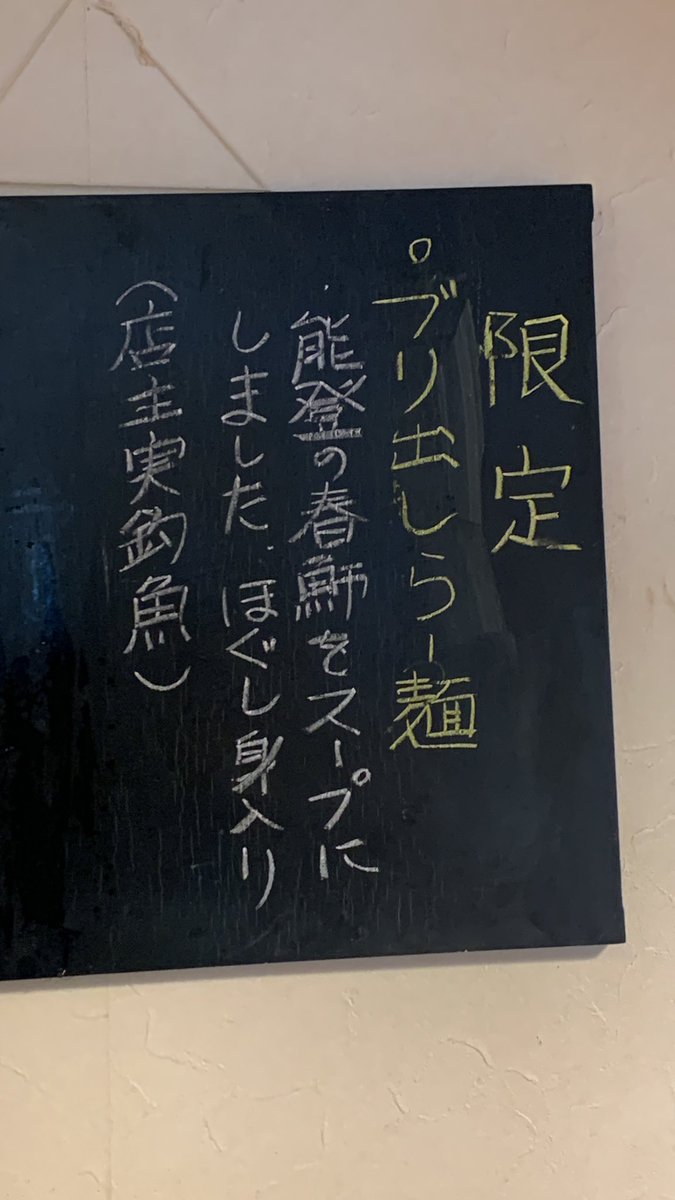 限定
○ブリ出しらー麺
・能登の春鰤をスープに
しました.ほぐし身入り
(店主実釣魚)